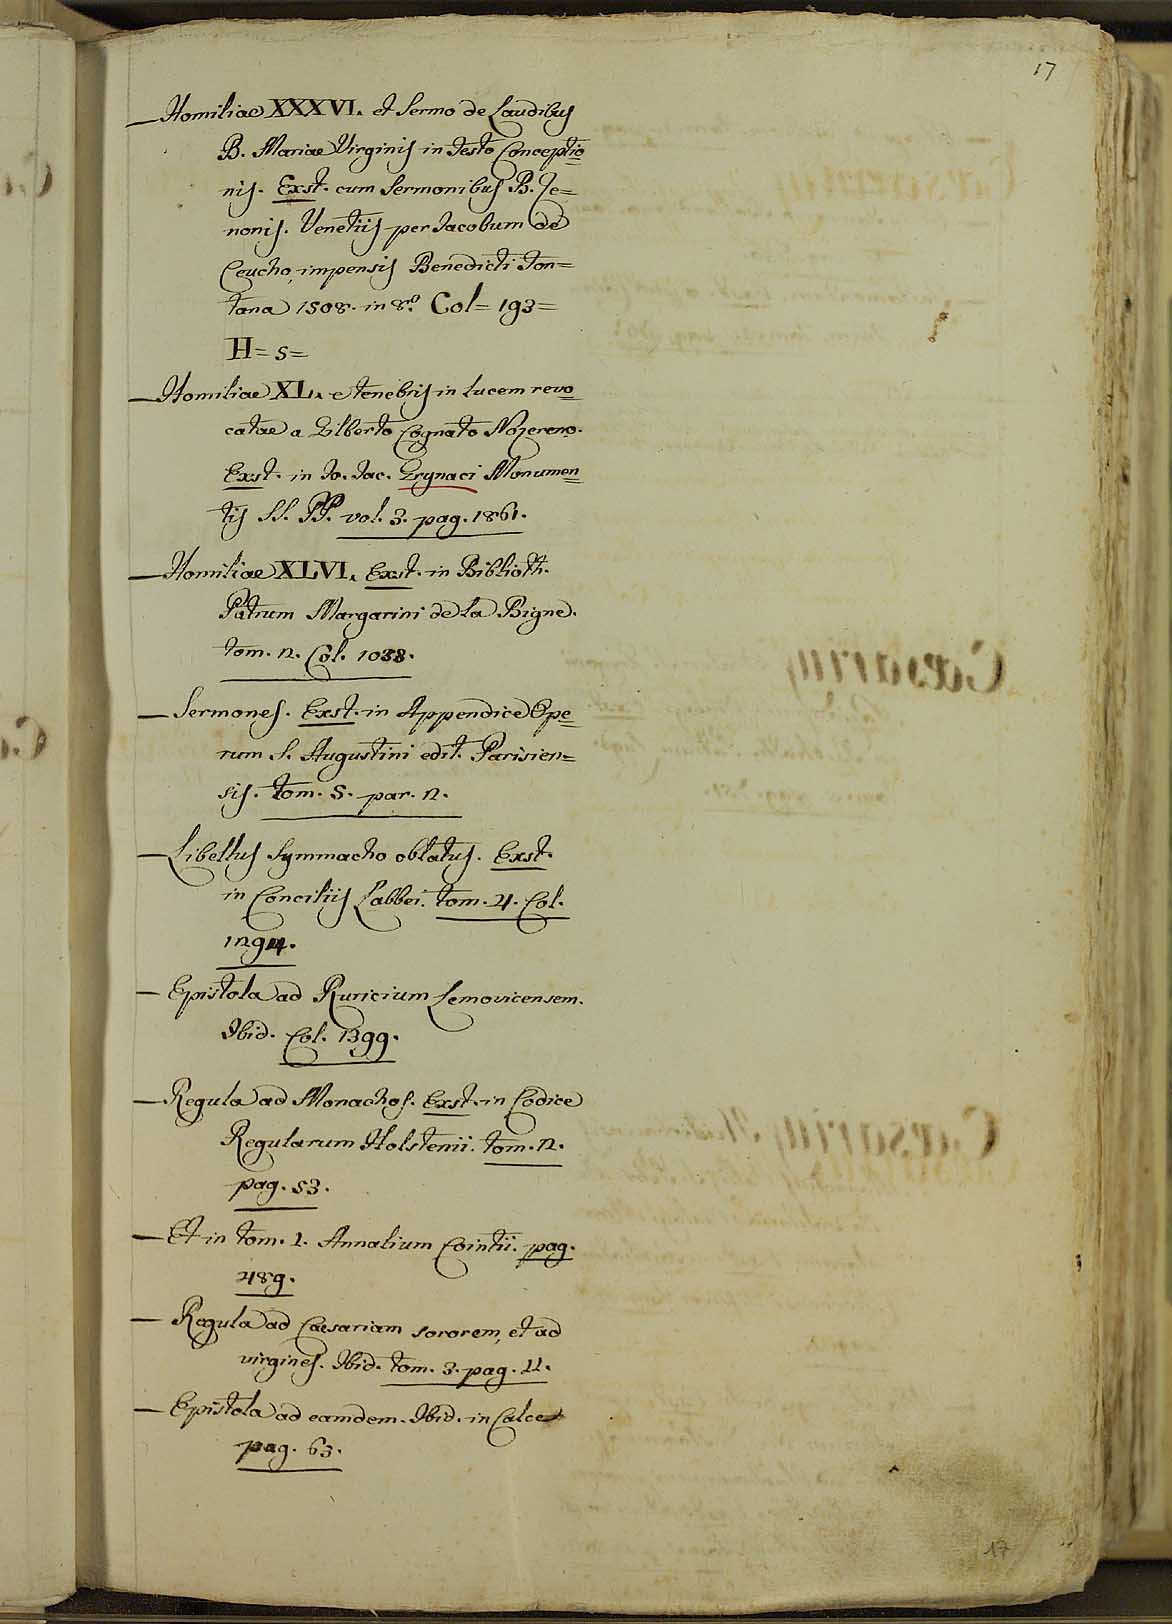 17
— Homiliae XXXVI. et Sermo de Laudibus
B. Mariae Virginis in Festo Conceptio=
nis. Exst. cum Sermonibus B. Ze=
nonis. Venetiis per Jacobum de
Leucho, impensis Benedicti Fon=
tana 1508. in 8.º Col= 193=
H= 5=
— Homiliae XL. e tenebris in lucem revo=
catae a Gilberto Cognato Nozereno.
Exst. in Jo. Jac. Grynaei Monumen=
tis SS. PP. vol. 3. pag. 1861.
— Homiliae XLVI. Exst. in Biblioth.
Patrum Margarini de la Bigne.
tom. 2. Col. 1038.
— Sermones. Exst. in Appendice Ope=
rum S. Augustini edit. Parisien=
sis. tom. 5. par. 2.
— Libellus Symmacho oblatus. Exst.
in Conciliis Labbei. tom. 4. Col.
1294.
— Epistola ad Ruricium Lemovicensem.
Ibid. Col. 1399.
— Regula ad Monachos. Exst. in Codice
Regularum Holstenii. tom. 2.
pag. 53.
— Et in tom. 1. Annalium Cointii. pag.
489.
— Regula ad Caesariam sororem, et ad
virgines. Ibid. tom. 3. pag. 11.
— Epistola ad eamdem. Ibid. in Calce
pag. 63.
17